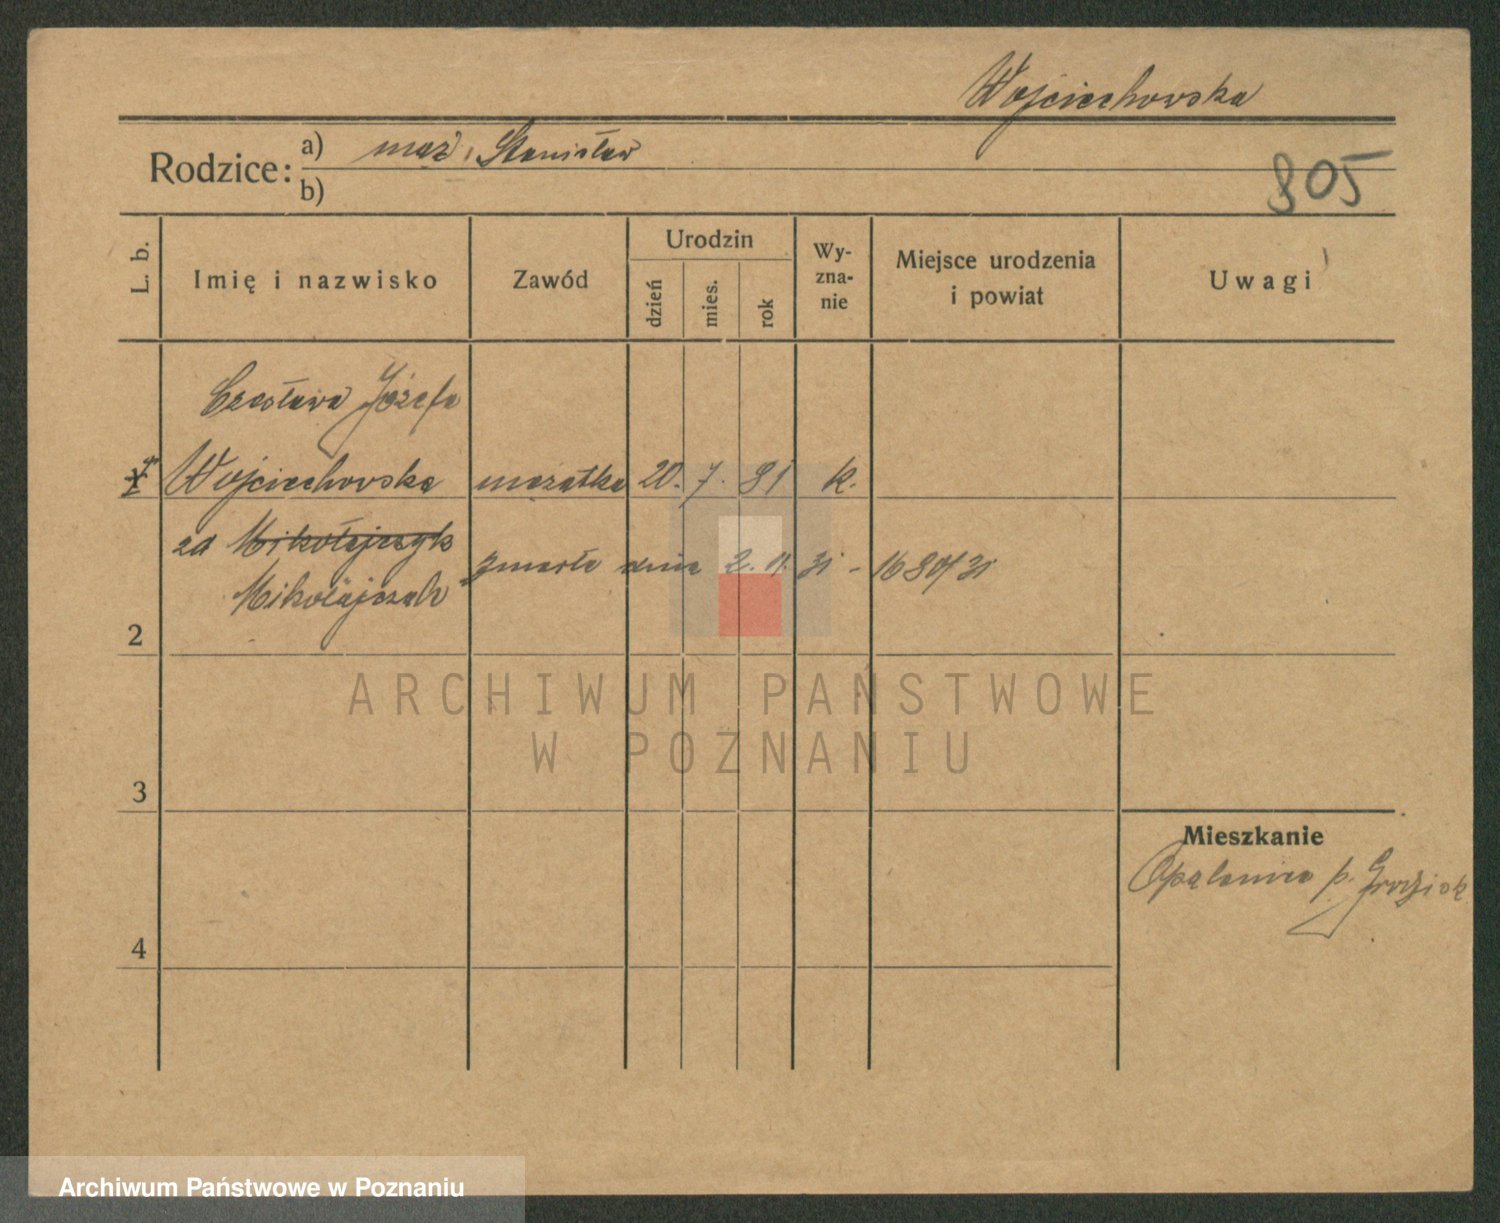 Wojciechowska
Rodzice: a) mąż, Stanisław
b)
805
L. b.
Imię i nazwisko
Zawód
Urodzin
dzień
mies.
rok
Wy-
zna-
nie
Miejsce urodzenia
i powiat
Uwagi
Czesława Józefa
Wojciechowska mężatka 20. 7. 81 k.
zd Mikołajczyk
zmarła dnia 2. 11. 31 - 1680/31
Mikołajczak
2
3
4
Mieszkanie
Opalenica p. Grodzisk
ARCHIWUM PAŃSTWOWE
W POZNANIU
Archiwum Państwowe w Poznaniu